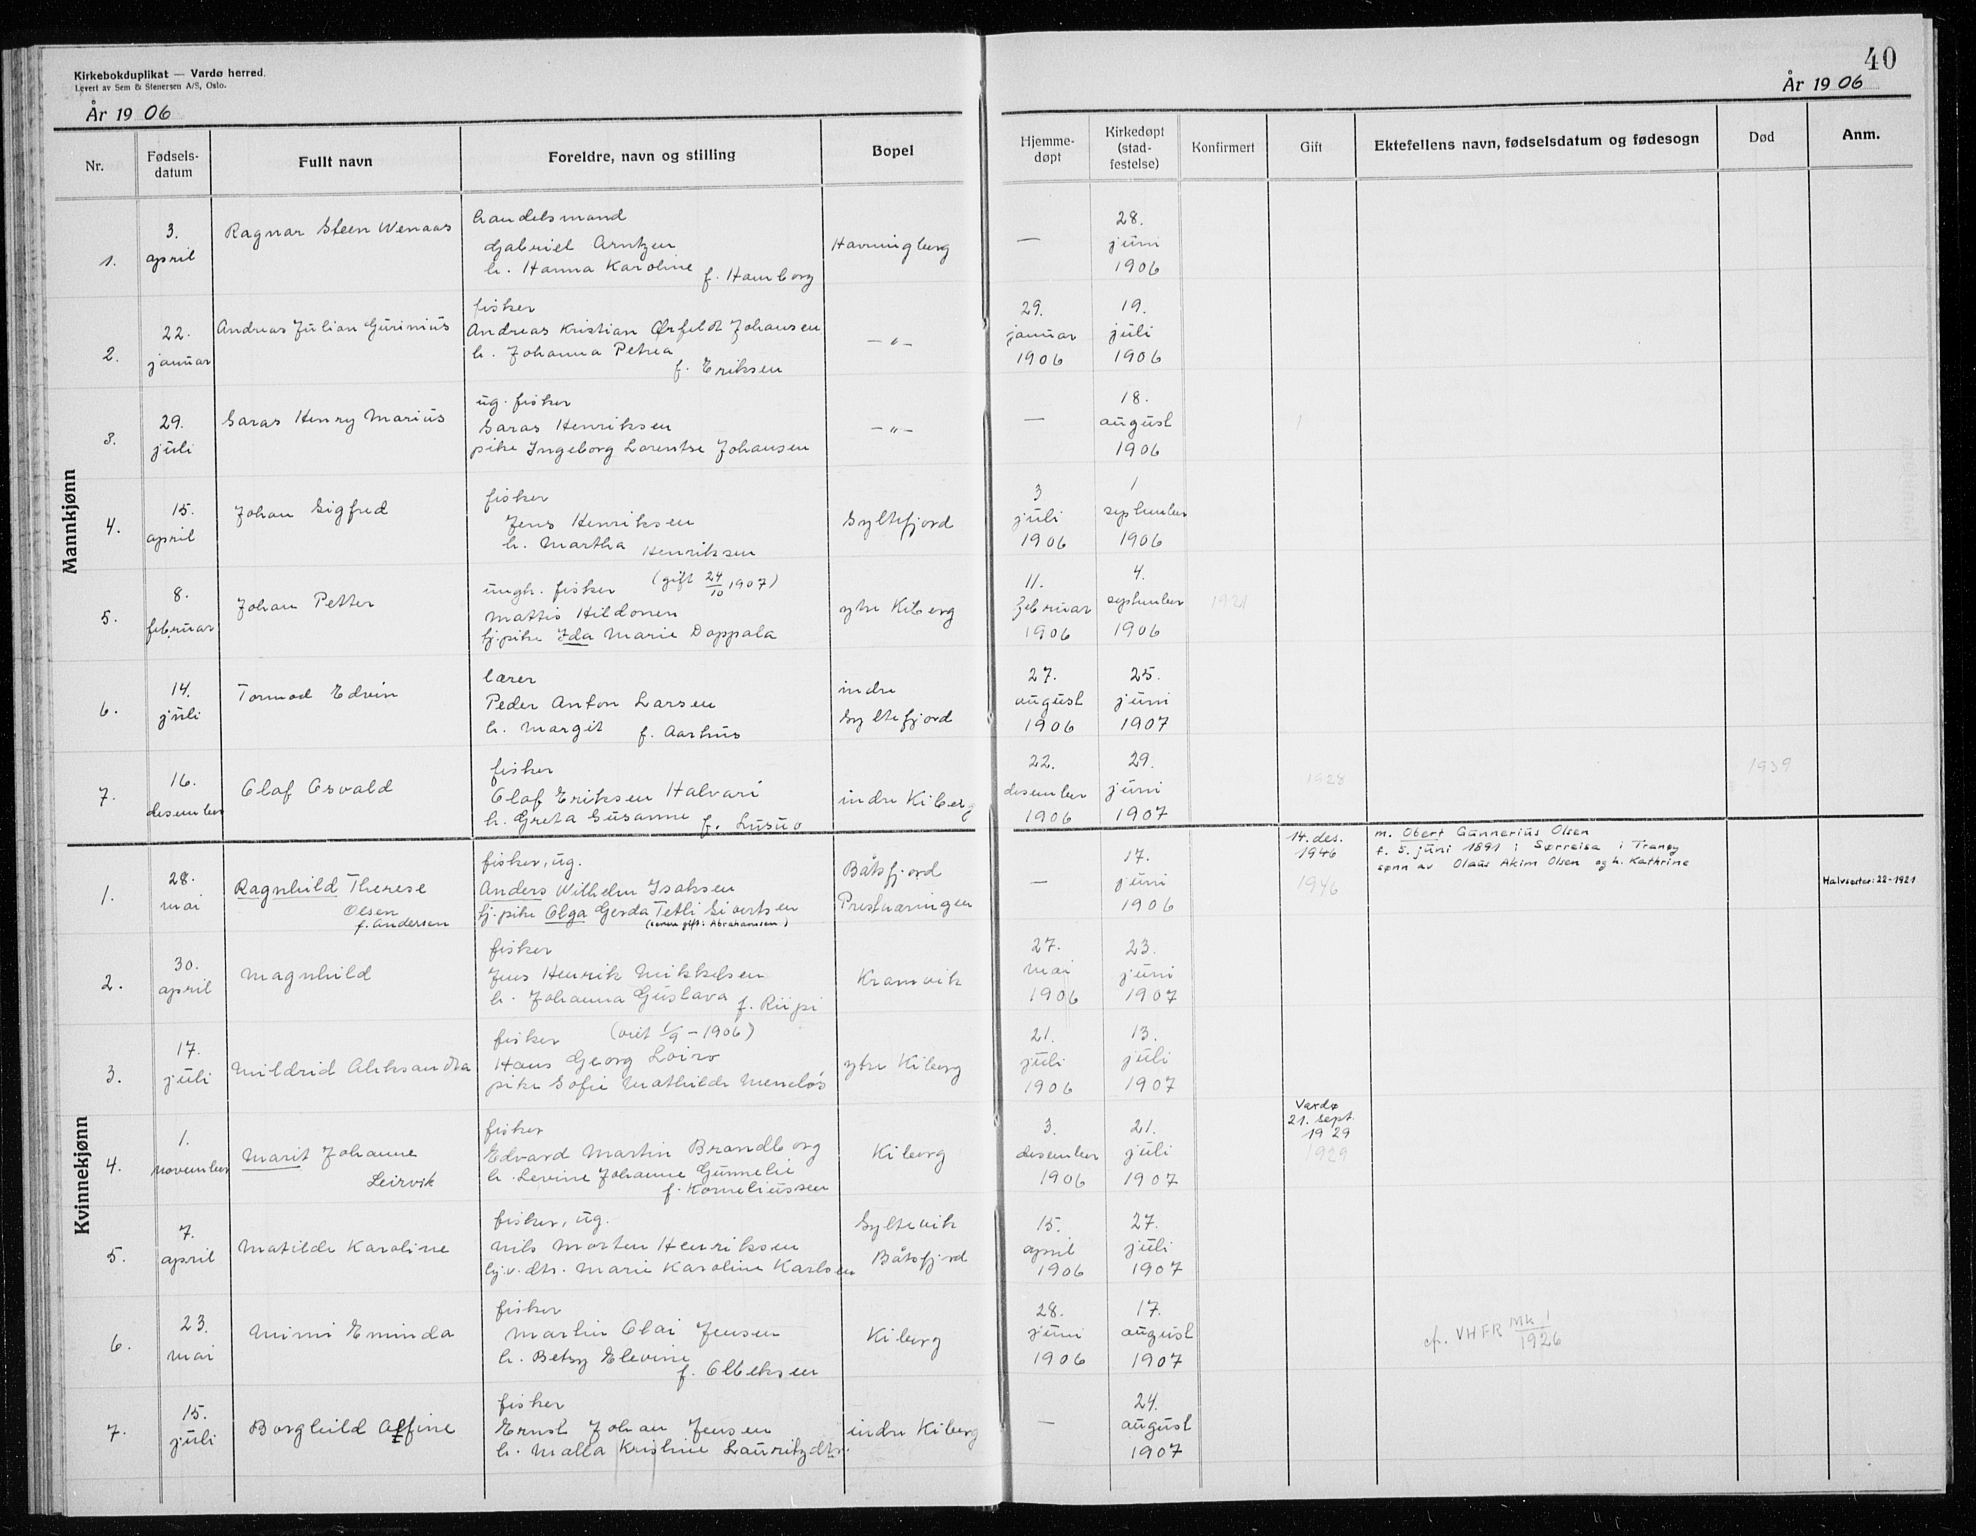 40
Kirkebokduplikat — Vardø herred.
Levert av Sem & Stenersen A/S, Oslo.
År 1906
År 1906
Nr. Fødsels-datum Fullt navn Foreldre, navn og stilling Bopel Hjemme-døpt Kirkedøpt (stad-festelse) Konfirmert Gift Ektefellens navn, fødselsdatum og fødesogn Død Anm.
Mannkjønn
handelsmand
3. Ragnar Steen Wenaas Gabriel Arntzen Havningberg — 28. juni 1906
1. april h. Hanna Karoline f. Hamborg
fisker
22. Andreas Julian Gurinius Andreas Kristian Ørfeldt Johansen —"— 29. januar 1906 19. juli 1906
2. januar h. Johanna Petrea
f. Eriksen
ug. fisker
29. Saras Henry Marius Saras Henriksen —"— — 18. august 1906
3. juli pike Ingeborg Lorentse Johansen
fisker
15. Johan Sigfred Jens Henriksen Syltefjord 3 juli 1906 1 september 1906
4. april h. Martha Henriksen
ungk. fisker (gift 24/10 1907)
8. Johan Petter Mattis Hildonen ytre Kiberg 11. februar 1906 4. september 1906 1921
5. februar fj. pike Ida Marie Dappala
lærer
14. Tormod Edvin Peder Anton Larsen indre Syltefjord 27. august 1906 25. juni 1907
6. juli h. Margit f. Aarhus
fisker
16. Olaf Osvald Olaf Eriksen Halvari indre Kiberg 22. desember 1906 29. juni 1907 1928 1939
7. desember h. Greta Susanne f. Lusuo
Kvinnekjønn
fisker, ug.
28. Ragnhild Therese Anders Wilhelm Isaksen Båtsfjord — 17. juni 1906 14. des. 1946 m. Obert Gunnerius Olsen
1. mai Olsen fj. pike Olga Gerda Tetli Sivertsen Prestnæringen 1946 f. 5. juni 1891 i Sørreisa i Tranøy
f. Andersen (senere gift: Abrahamsen) sønn av Olaus Akim Olsen og h. Kathrine
Halvsøster: 22-1921
fisker
30. Magnhild Jens Henrik Mikkelsen Kramvik 27. mai 1906 23. juni 1907
2. april h. Johanna Gustava f. Riipi
fisker (viet 1/9 - 1906)
17. Mildrid Aleksandra Hans Georg Loiro ytre Kiberg 21. juli 1906 13. juli 1907
3. juli pike Sofie Mathilde Meneløs
fisker
1. Marit Johanne Edvard Martin Brandborg Kiberg 3. desember 1906 21. juli 1907 Vardø 21. sept. 1929
4. november Leirvik h. Levine Johanne Gunnelie 1929
f. Korneliussen
fisker, ug.
7. Matilde Karoline Nils Morten Henriksen Syltevik Båtsfjord 15. april 1906 27. juli 1907
5. april fj.v. dtr. Marie Karoline Karlsen
fisker
23. Mimi Eminda Martin Olai Jensen Kiberg 28. juni 1906 17. august 1907 cf. VHFR Mk 1/1926
6. mai h. Betsy Elevine
f. Olbeksen
fisker
15. Borghild Alfine Ernst Johan Jensen indre Kiberg — 24. august 1907
7. juli h. Malla Kristine Lauritzdtr.